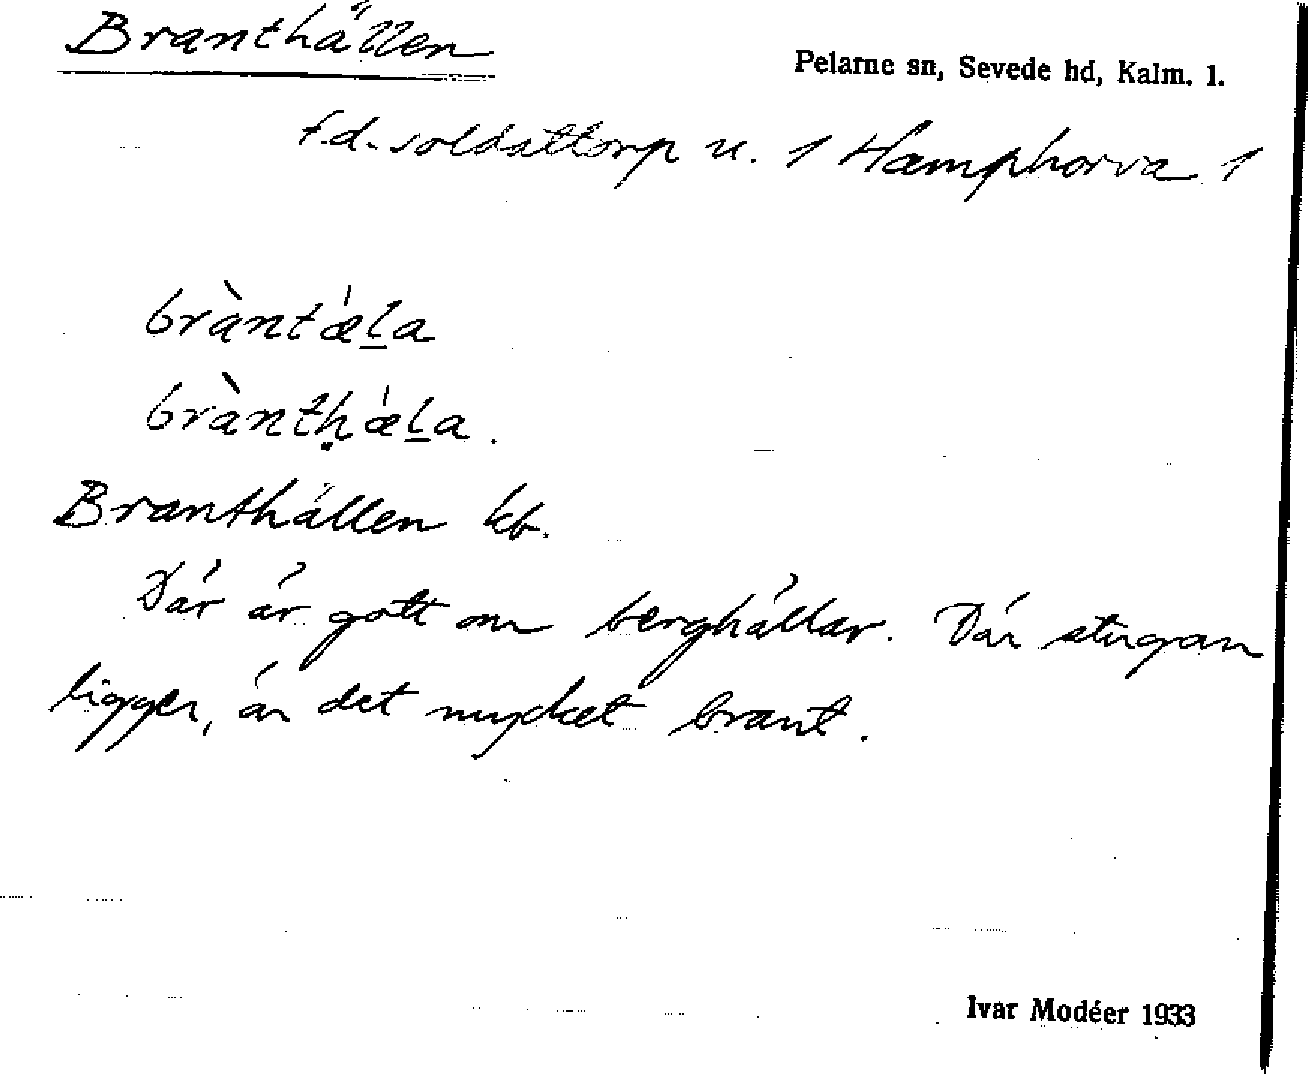 Branthällen
Pelarne sn, Sevede hd, Kalm. l.
f.d. soldattorp u. 1 Hamphorva 1
bràntǽl̲a
bràntḥǽl̲a.
Branthällen kb.
Där är gott om berghällar. Där stugan
ligger, är det mycket brant.
Ivar Modéer 1933